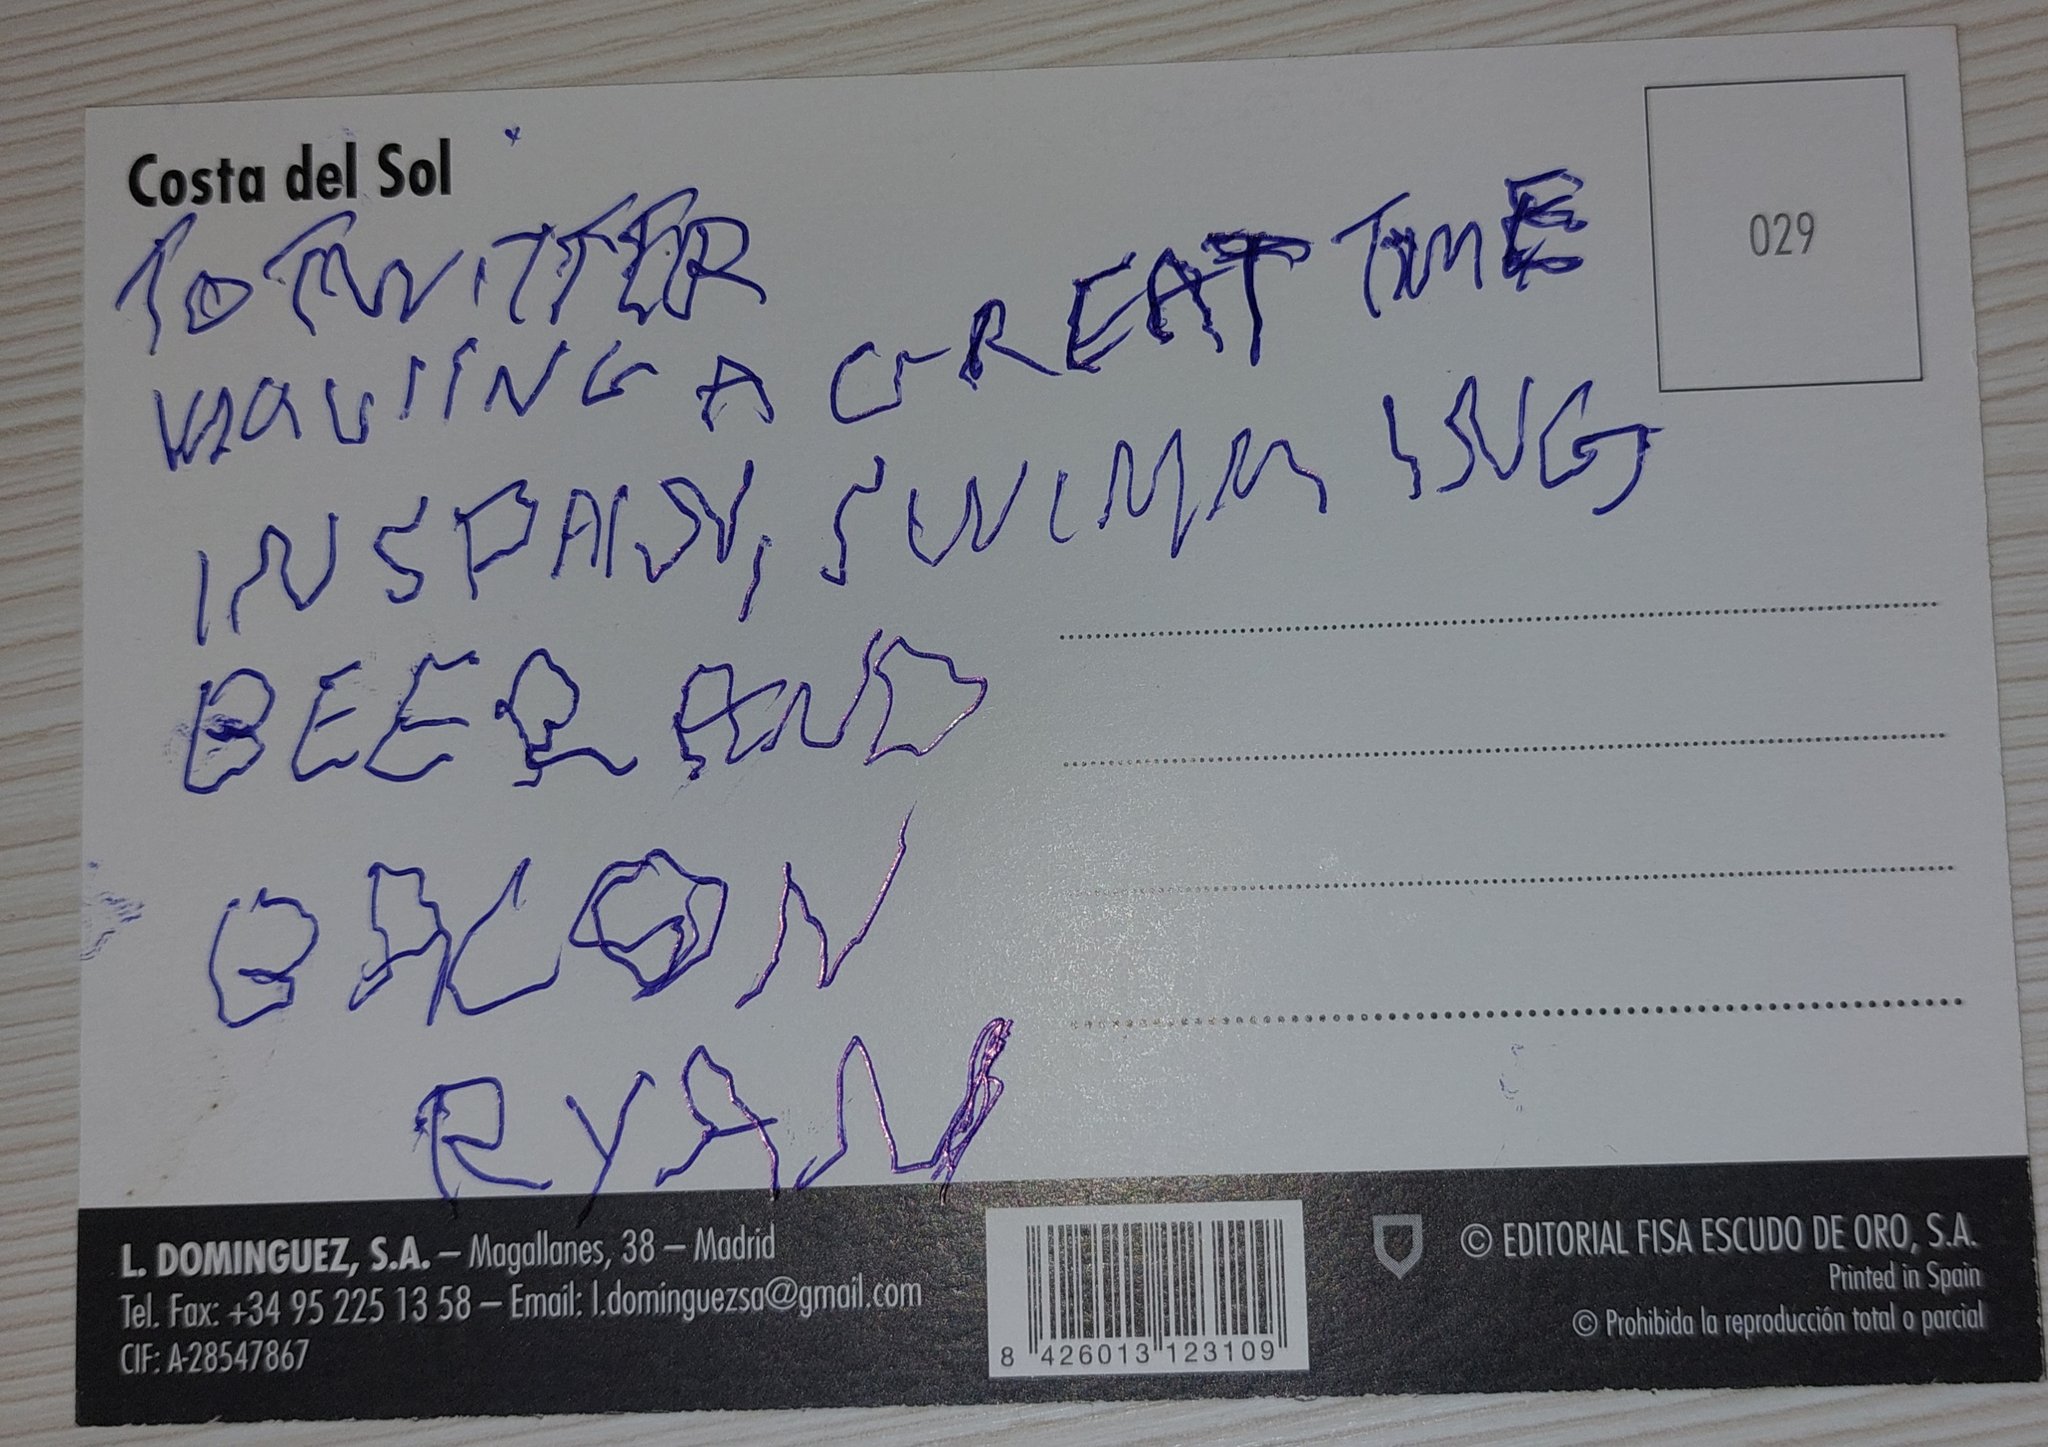 Costa del Sol
029
TO TWITTER
HAVING A GREAT TIME
IN SPAIN, SWIMMING
BEER AND
BACON
RYAN
L. DOMINGUEZ, S.A. – Magallanes, 38 – Madrid
Tel. Fax: +34 95 225 13 58 – Email: l.dominguezsa@gmail.com
CIF: A-28547867
8 426013 123109
© EDITORIAL FISA ESCUDO DE ORO, S.A.
Printed in Spain
© Prohibida la reproducción total o parcial